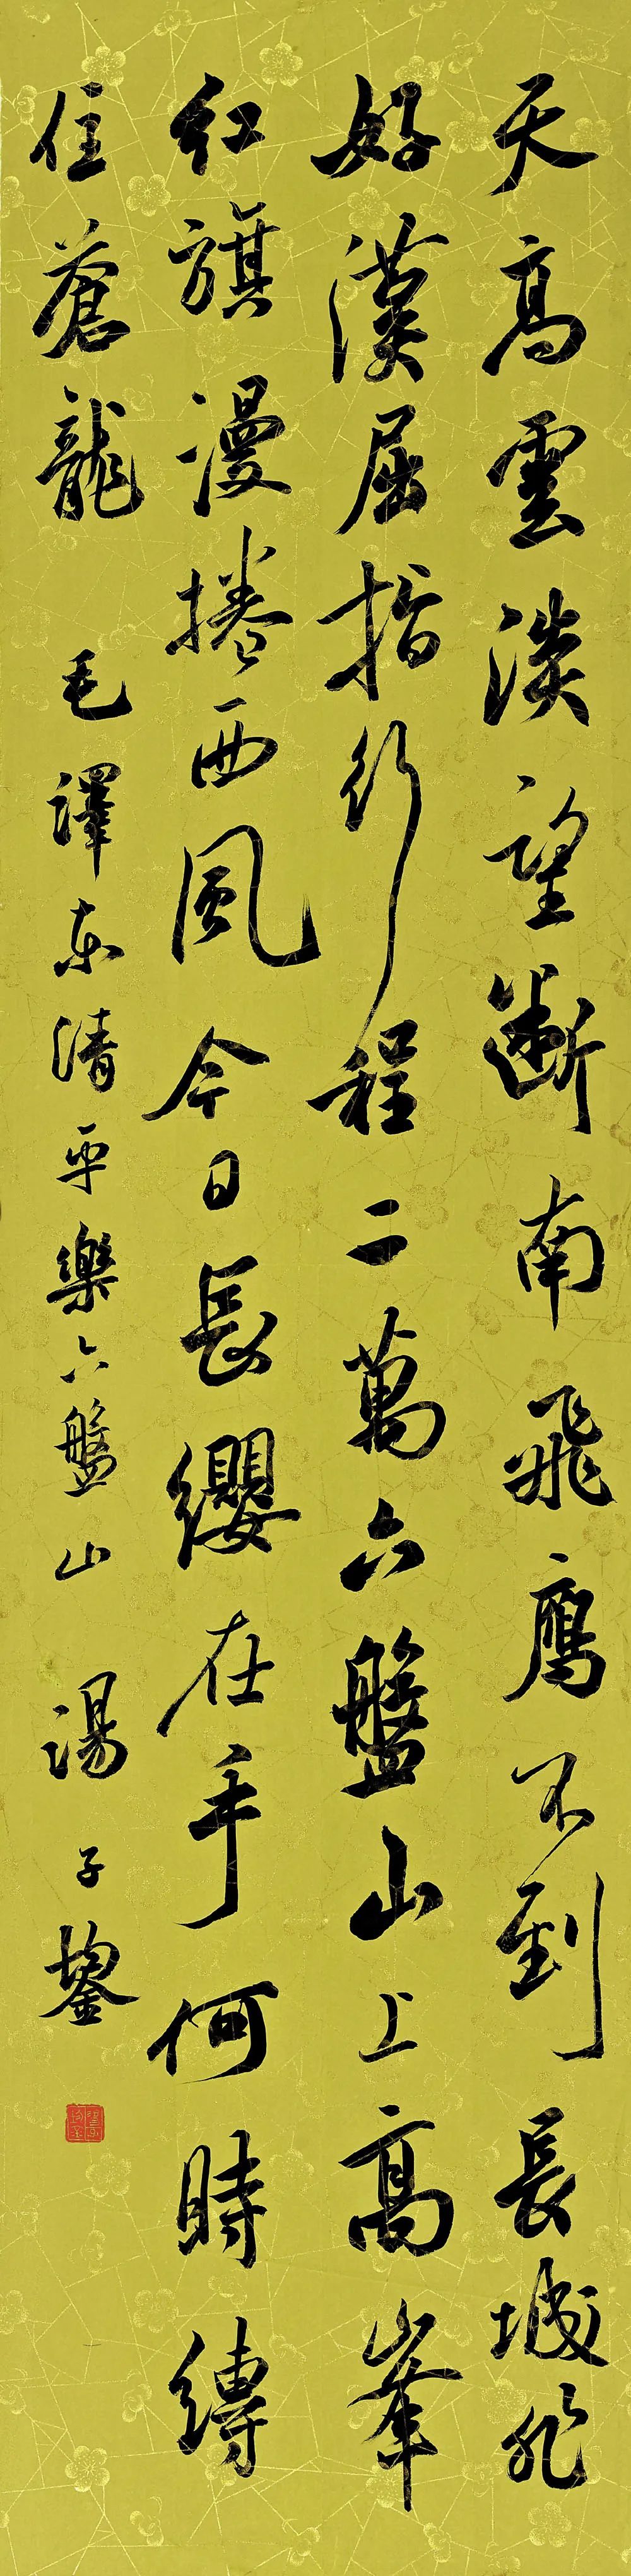 天高雲淡望斷南飛鴈不到長城非
好漢屈指行程二萬六盤山上高峯
紅旗漫捲西風今日長纓在手何時縛
住蒼龍 毛澤東清平樂六盤山 湯子鋆